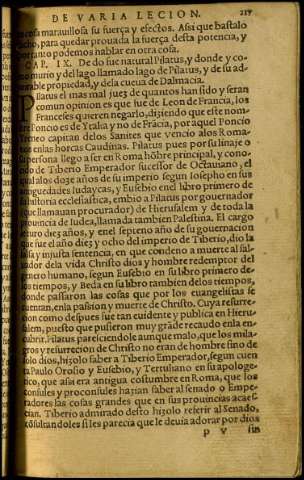 DE VARIA LECION. 117
es cosa marauillosa su fuerça y efectos. Assi que bastalo
dicho, para quedar prouada la fuerça desta potencia, y
por tanto podemos hablar en otra cosa.
CAP. IX. De do fue natural Pilatus, y donde y co-
mo murio y del lago llamado lago de Pilatus, y de su ad-
mirable propiedad, y dela cueua de Dalmacia.
Pilatus el mas mal juez de quantos han sido y seran
comun opinion es que fue de Leon de Francia, los
Franceses quieren negarlo, diziendo que este nom-
bre Poncio es de Ytalia y no de Frácia, por aquel Poncio
Ireneo capitan delos Sanites que vencio alos Roma-
nos enlas horcas Caudinas. Pilatus pues por su linaje o
su persona llego a ser en Roma hõbre principal, y cono-
cido de Tiberio Emperador sucessor de Octauiano, el
qual alos doze años de su imperio segun Iosepho en sus
antiguedades Iudaycas, y Eusebio enel libro primero de
la historia ecclesiastica, embio a Pilatus por gouernador
(que llamauan procurador) de Hierusalem y de toda la
prouincia de Iudea, llamada tambien Palestina. El cargo
le turo diez años, y enel septeno año de su gouernacion
que fue el año diez y ocho del imperio de Tiberio, dio la
falsa y injusta sentencia, en que condeno a muerte al sal-
uador dela vida Christo dios y hombre redemptor del
genero humano, segun Eusebio en su libro primero de-
los tiempos, y Beda en su libro tambien delos tiempos,
donde passaron las cosas que por los euangelistas se
cuentan, enla passion y muerte de Christo. Cuya resurre-
cion como despues fue tan euidente y publica en Hieru-
salem, puesto que pusieron muy gráde recaudo enla en-
cubrir. Pilatus pareciendole aunque malo, que los mila-
gros y resurrecion de Christo no eran de hombre sino de
solo dios, hizolo saber a Tiberio Emperador, segun cuen
ta Paulo Orosio y Eusebio, y Tertuliano en su apologe-
tico, que assi era antigua costumbre en Roma, que los
consules y proconsules hazian saber al senado o Empe-
radores las cosas grandes que en sus prouincias acaec
cian. Tiberio admirado desto hizolo referir al Senado,
cõsultandoles si les parecia que le deuia adorar por dios
P v